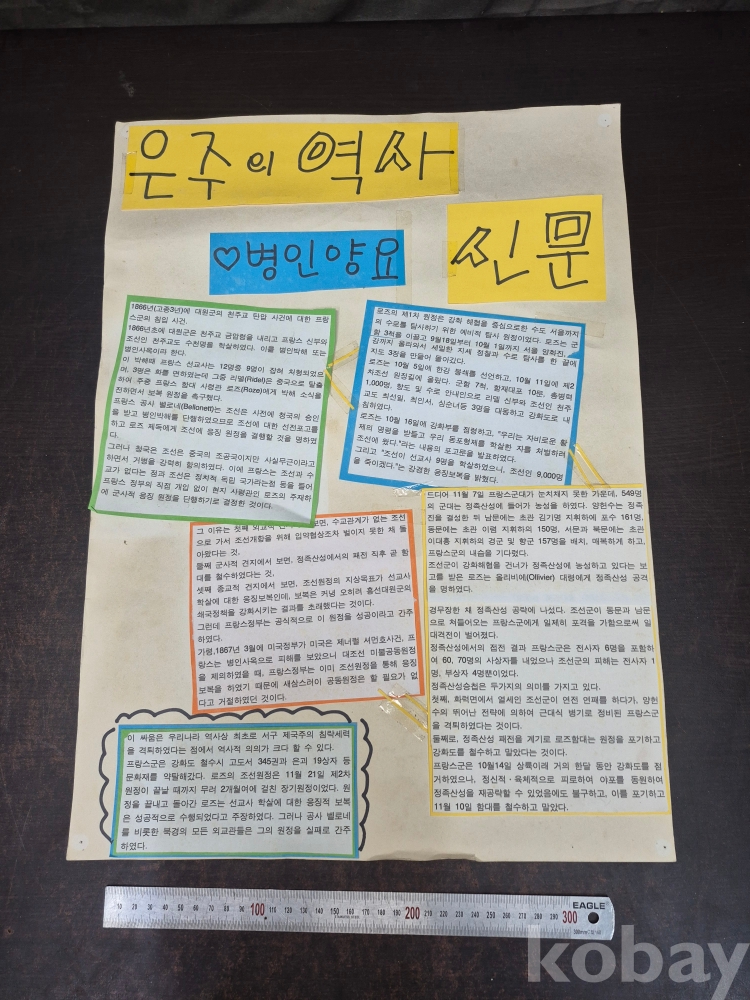 은주의 역사
신문
♡병인양요
1866년(고종3년)에 대원군의 천주교 탄압 사건에 대한 프랑
스군의 침입 사건.
1866년초에 대원군은 천주교 금압령을 내리고 프랑스 신부와
조선인 천주교도 수천명을 학살하였다. 이를 병인박해 또는
병인사옥이라 한다.
이 박해때 프랑스 선교사는 12명중 9명이 잡혀 처형되었으
며, 3명은 화를 면하였는데 그중 리델(Ridel)은 중국으로 탈출
하여 주중 프랑스 함대 사령관 로즈(Roze)에게 박해 소식을
전하면서 보복 원정을 촉구했다.
프랑스 공사 벨로네(Bellonett)는 조선은 사전에 청국의 승인
을 받고 병인박해를 단행하였으므로 조선에 대한 선전포고를
하고 로즈 제독에게 조선에 응징 원정을 결행할 것을 명하였
다.
그러나 청국은 조선은 중국의 조공국이지만 사실무근이라고
하면서 거병을 강력히 항의하였다. 이에 프랑스는 조선과 수
교가 없다는 점과 조선은 정치적 독립 국가라는점 등을 들어
프랑스 정부의 직접 개입 없이 현지 사령관인 로즈의 주재하
에 군사적 응징 원정을 단행하기로 결정한 것이다.
로즈의 제1차 원정은 강화 해협을 중심으로한 수도 서울까지
의 수로를 탐사하기 위한 예비적 탐사 원정이었다. 로즈는 군
함 3척을 이끌고 9월18일부터 10월 1일까지 서울 양화진,
강까지 올라와서 세밀한 지세 정찰과 수로 탐사를 한 끝에
지도 3장을 만들어 돌아갔다.
로즈는 10월 5일에 한강 봉쇄를 선언하고, 10월 11일에 제2
차조선 원정길에 올랐다. 군함 7척, 함재대포 10문, 총병력
1,000명, 향도 및 수로 안내인으로 리델 신부와 조선인 천주
교도 최선일, 최인서, 심순녀등 3명을 대동하고 강화도로 내
침하였다.
로즈는 10월 16일에 강화부를 점령하고, "우리는 자비로운 황
제의 명령을 받들고 우리 동포형제를 학살한 자를 처벌하러
조선에 왔다."라는 내용의 포고문을 발표하였다.
그리고 "조선이 선교사 9명을 학살하였으니, 조선인 9,000명
을 죽이겠다."는 강경한 응징보복을 밝혔다.
드디어 11월 7일 프랑스군대가 눈치채지 못한 가운데, 549명
의 군대는 정족산성에 들어가 농성을 하였다. 양헌수는 정족
진을 결성한 뒤 남문에는 초관 김기명 지휘하에 포수 161명,
동문에는 초관 이렴 지휘하의 150명, 서문과 북문에는 초관
이대흥 지휘하의 경군 및 향군 157명을 배치, 매복하게 하고,
프랑스군의 내습을 기다렸다.
조선군이 강화해협을 건너가 정족산성에 농성하고 있다는 보
고를 받은 로즈는 올리비에(Olivier) 대령에게 정족산성 공격
을 명하였다.
경무장한 채 정족산성 공략에 나섰다. 조선군이 동문과 남문
으로 쳐들어오는 프랑스군에게 일제히 포격을 가함으로써 일
대격전이 벌어졌다.
정족산성에서의 접전 결과 프랑스군은 전사자 6명을 포함하
여 60, 70명의 사상자를 내었으나 조선군의 피해는 전사자 1
명, 부상자 4명뿐이었다.
정족산성승첩은 두가지의 의미를 가지고 있다.
첫째, 화력면에서 열세인 조선군이 연전 연패를 하다가, 양헌
수의 뛰어난 전략에 의하여 근대식 병기로 정비된 프랑스군
을 격퇴하였다는 것이다.
둘째로, 정족산성 패전을 계기로 로즈함대는 원정을 포기하고
강화도를 철수하고 말았다는 것이다.
프랑스군은 10월14일 상륙이래 거의 한달 동안 강화도를 점
거하였으나, 정신적·육체적으로 피로하여 야포를 동원하여
정족산성을 재공략할 수 있었음에도 불구하고, 이를 포기하고
11월 10일 함대를 철수하고 말았다.
그 이유는 첫째 외교적 보면, 수교관계가 없는 조선
으로 가서 조선개항을 위해 입약협상조차 벌이지 못한 체 돌
아왔다는 것,
둘째 군사적 견지에서 보면, 정족산성에서의 패전 직후 곧 함
대를 철수하였다는 것,
셋째 종교적 견지에서 보면, 조선원정의 지상목표가 선교사
학살에 대한 응징보복인데, 보복은 커녕 오히려 흥선대원군의
쇄국정책을 강화시키는 결과를 초래했다는 것이다.
그런데 프랑스정부는 공식적으로 이 원정을 성공이라고 간주
하였다.
기령,1867년 3월에 미국정부가 미국은 제너럴 셔먼호사건, 프
랑스는 병인사옥으로 피해를 보았으니 대조선 미불공동원정
을 제의하였을 때, 프랑스정부는 이미 조선원정을 통해 응징
보복을 하였기 때문에 새삼스러이 공동원정은 할 필요가 없
다고 거절하였던 것이다.
이 싸움은 우리나라 역사상 최초로 서구 제국주의 침략세력
을 격퇴하였다는 점에서 역사적 의의가 크다 할 수 있다.
프랑스군은 강화도 철수시 고도서 345권과 은괴 19상자 등
문화재를 약탈해갔다. 로즈의 조선원정은 11월 21일 제2차
원정이 끝날 때까지 무려 2개월여에 걸친 장기원정이었다. 원
정을 끝내고 돌아간 로즈는 선교사 학살에 대한 응징적 보복
은 성공적으로 수행되었다고 주장하였다. 그러나 공사 벨로네
를 비롯한 북경의 모든 외교관들은 그의 원정을 실패로 간주
하였다.
10 20 30 40 50 60 70 80 90 100 110 120 130 140 150 160 170 180 190 200 210 220 230 240 250 260 270 280 290 300
EAGLE
kobay